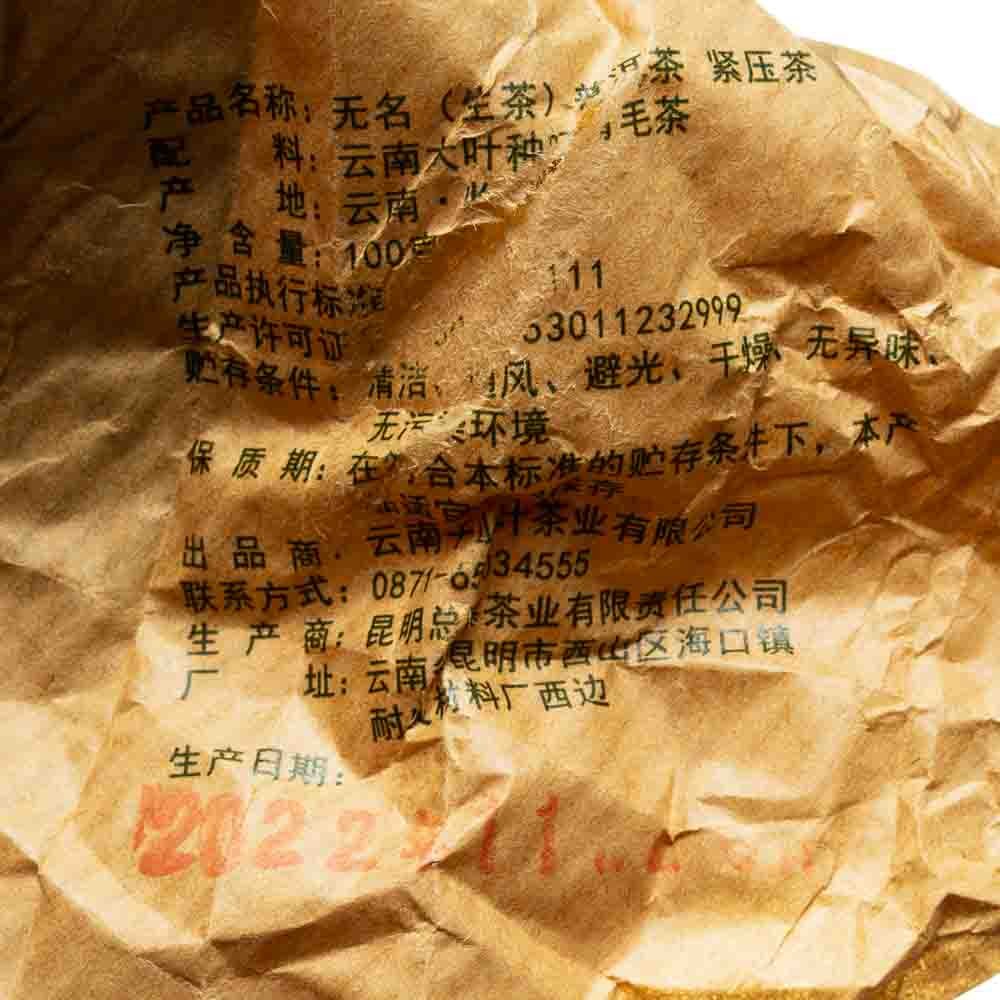 产品名称：无名（生茶）普洱茶 紧压茶
配 料：云南大叶种 毛茶
产 地：云南·
净 含 量：100
产品执行标 111
生产许可证 53011232999
贮存条件：清洁、通风、避光、干燥、无异味、
无污染环境
保 质 期：在符合本标准的贮存条件下，本产
保存
出 品 商： 云南 叶茶业有限公司
联系方式：0871-65 34555
生 产 商：昆明总 茶业有限责任公司
厂 址：云南 昆明市西山区海口镇
耐火材料厂西边
生产日期：
2022年11